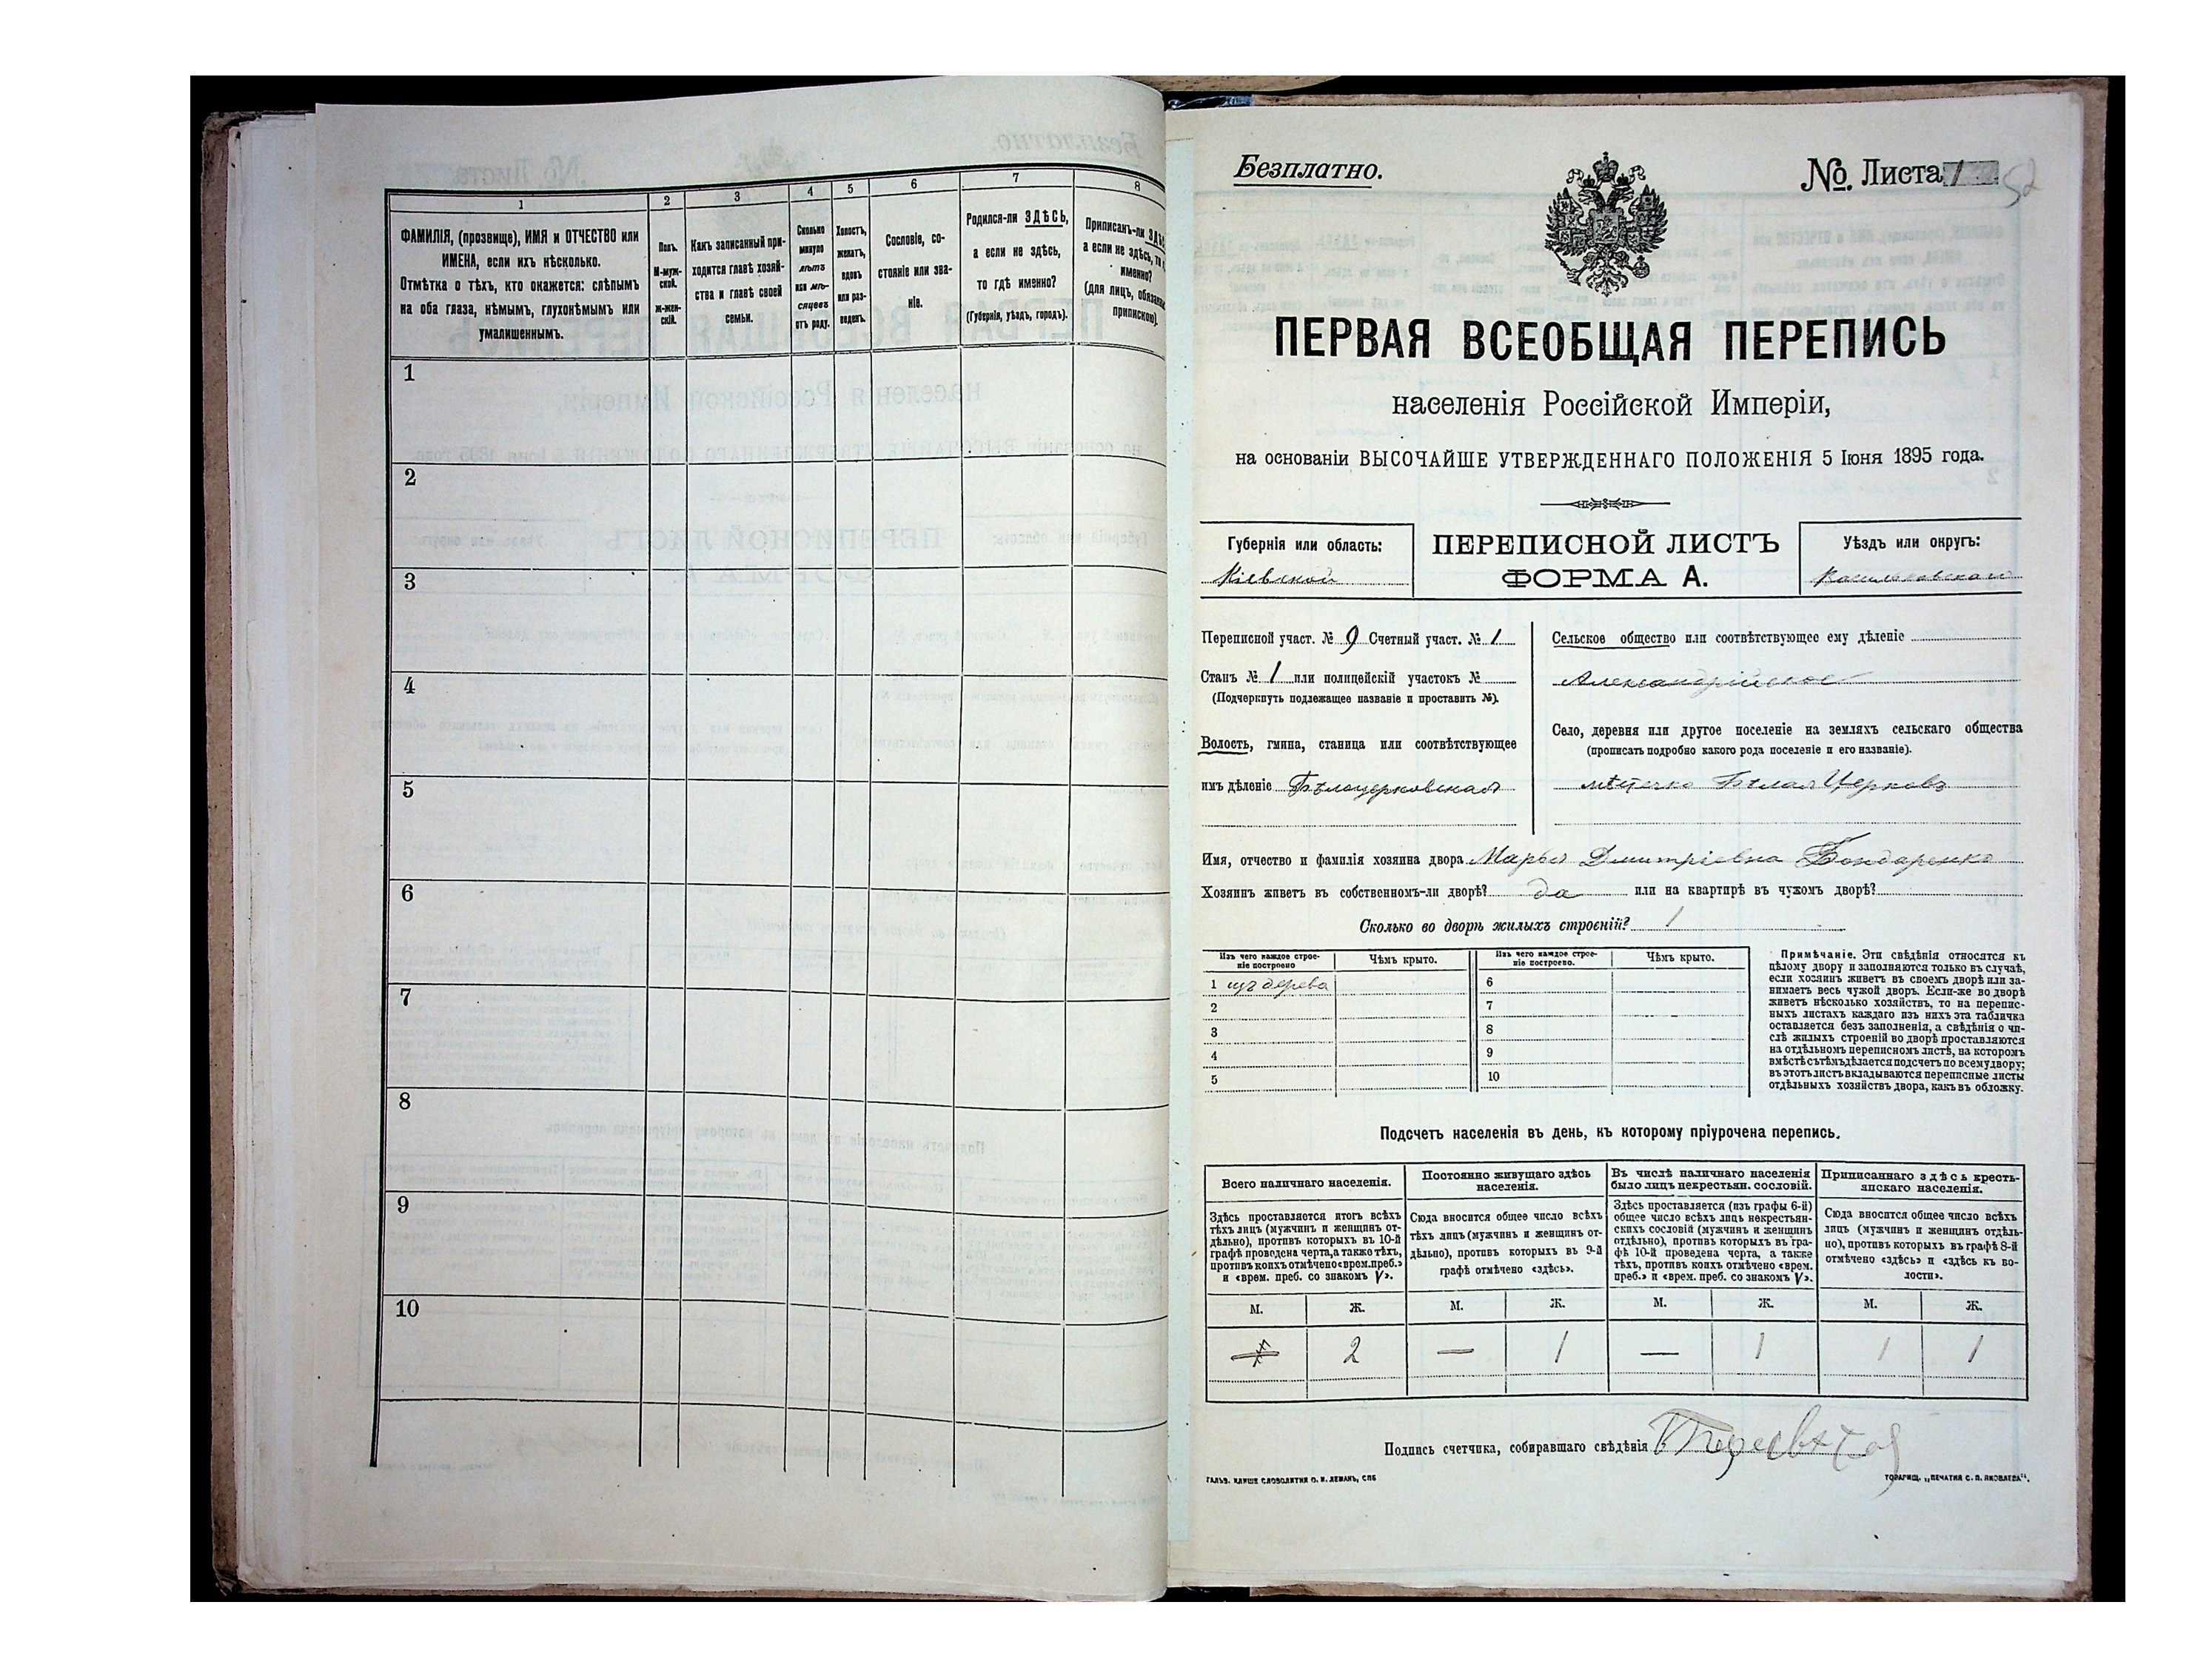 1
2
3
4
5
6
7
8
ФАМИЛІЯ, (прозвище), ИМЯ и ОТЧЕСТВО или
ИМЕНА, если ихъ нѣсколько.
Отмѣтка о тѣхъ, кто окажется: слѣпымъ
на оба глаза, нѣмымъ, глухонѣмымъ или
умалишеннымъ.
Полъ.
М-муж-
ской.
ж-жен-
скій.
Какъ записанный при-
ходится главѣ хозяй-
ства и главѣ своей
семьи.
Сколько
минуло
лѣтъ
или мѣ-
сяцевъ
отъ роду.
Холостъ,
женатъ,
вдовъ
или раз-
веденъ.
Сословіе, со-
стояніе или зва-
ніе.
Родился-ли ЗДѢСЬ,
а если не здѣсь,
то гдѣ именно?
(Губернія, уѣздъ, городъ).
Приписанъ-ли
а если не здѣсь,
именно?
(для лицъ,
припискою).
1
2
3
4
5
6
7
8
9
10
Безплатно.
№ Листа 1
52
ПЕРВАЯ ВСЕОБЩАЯ ПЕРЕПИСЬ
населенія Россійской Имперіи,
на основаніи ВЫСОЧАЙШЕ УТВЕРЖДЕННАГО ПОЛОЖЕНІЯ 5 Іюня 1895 года.
Губернія или область:
Кіевской
ПЕРЕПИСНОЙ ЛИСТЪ
ФОРМА А.
Уѣздъ или округъ:
Васильковскаго
Переписной участ. № 9 Счетный участ. № 1
Станъ № 1 или полицейскій участокъ №
(Подчеркнуть подлежащее названіе и проставить №).
Волость, гмина, станица или соотвѣтствующее
имъ дѣленіе Бѣлоцерковская
Сельское общество или соотвѣтствующее ему дѣленіе
Александрійское
Село, деревня или другое поселеніе на земляхъ сельскаго общества
(прописать подробно какого рода поселеніе и его названіе).
мѣстечко Бѣлая Церковь
Имя, отчество и фамилія хозяина двора Марья Дмитріевна Бондаренко
Хозяинъ живетъ въ собственномъ-ли дворѣ? да или на квартирѣ въ чужомъ дворѣ?
Сколько во дворѣ жилыхъ строеній? 1
Изъ чего каждое строе-
ніе построено
Чѣмъ крыто.
Изъ чего каждое строе-
ніе построено.
Чѣмъ крыто.
1 изъ дерева
2
3
4
5
6
7
8
9
10
Примѣчаніе. Эти свѣдѣнія относятся къ
цѣлому двору и заполняются только въ случаѣ,
если хозяинъ живетъ въ своемъ дворѣ или за-
нимаетъ весь чужой дворъ. Если-же во дворѣ
живетъ нѣсколько хозяйствъ, то на перепис-
ныхъ листахъ каждаго изъ нихъ эта табличка
оставляется безъ заполненія, а свѣдѣнія о чи-
слѣ жилыхъ строеній во дворѣ проставляются
на отдѣльномъ переписномъ листѣ, на которомъ
вмѣстѣ съ тѣмъ дѣлается подсчетъ по всему двору;
въ этотъ листъ вкладываются переписные листы
отдѣльныхъ хозяйствъ двора, какъ въ обложку.
Подсчетъ населенія въ день, къ которому пріурочена перепись.
Всего наличнаго населенія.
Постоянно живущаго здѣсь
населенія.
Въ числѣ наличнаго населенія
было лицъ некрестьян. сословій.
Приписаннаго здѣсь кресть-
янскаго населенія.
Здѣсь проставляется итогъ всѣхъ
тѣхъ лицъ (мужчинъ и женщинъ от-
дѣльно), противъ которыхъ въ 10-й
графѣ проведена черта, а также тѣхъ,
противъ коихъ отмѣчено «врем. преб.»
и «врем. преб. со знакомъ V».
Сюда вносится общее число всѣхъ
тѣхъ лицъ (мужчинъ и женщинъ от-
дѣльно), противъ которыхъ въ 9-й
графѣ отмѣчено «здѣсь».
Здѣсь проставляется (изъ графы 6-й)
общее число всѣхъ лицъ некрестьян-
скихъ сословій (мужчинъ и женщинъ
отдѣльно), противъ которыхъ въ гра-
фѣ 10-й проведена черта, а также
тѣхъ, противъ коихъ отмѣчено «врем.
преб.» и «врем. преб. со знакомъ V».
Сюда вносится общее число всѣхъ
лицъ (мужчинъ и женщинъ отдѣль-
но), противъ которыхъ въ графѣ 8-й
отмѣчено «здѣсь» и «здѣсь къ во-
лости».
М. Ж. М. Ж. М. Ж. М. Ж.
2 — 1 — 1 1 1
Подпись счетчика, собиравшаго свѣдѣнія
ГАЛЬВ. КЛИШЕ СЛОВОЛИТНИ О. И. ЛЕМАНЪ, СПБ
ТОВАРИЩ. „ПЕЧАТНЯ С. П. ЯКОВЛЕВА“.